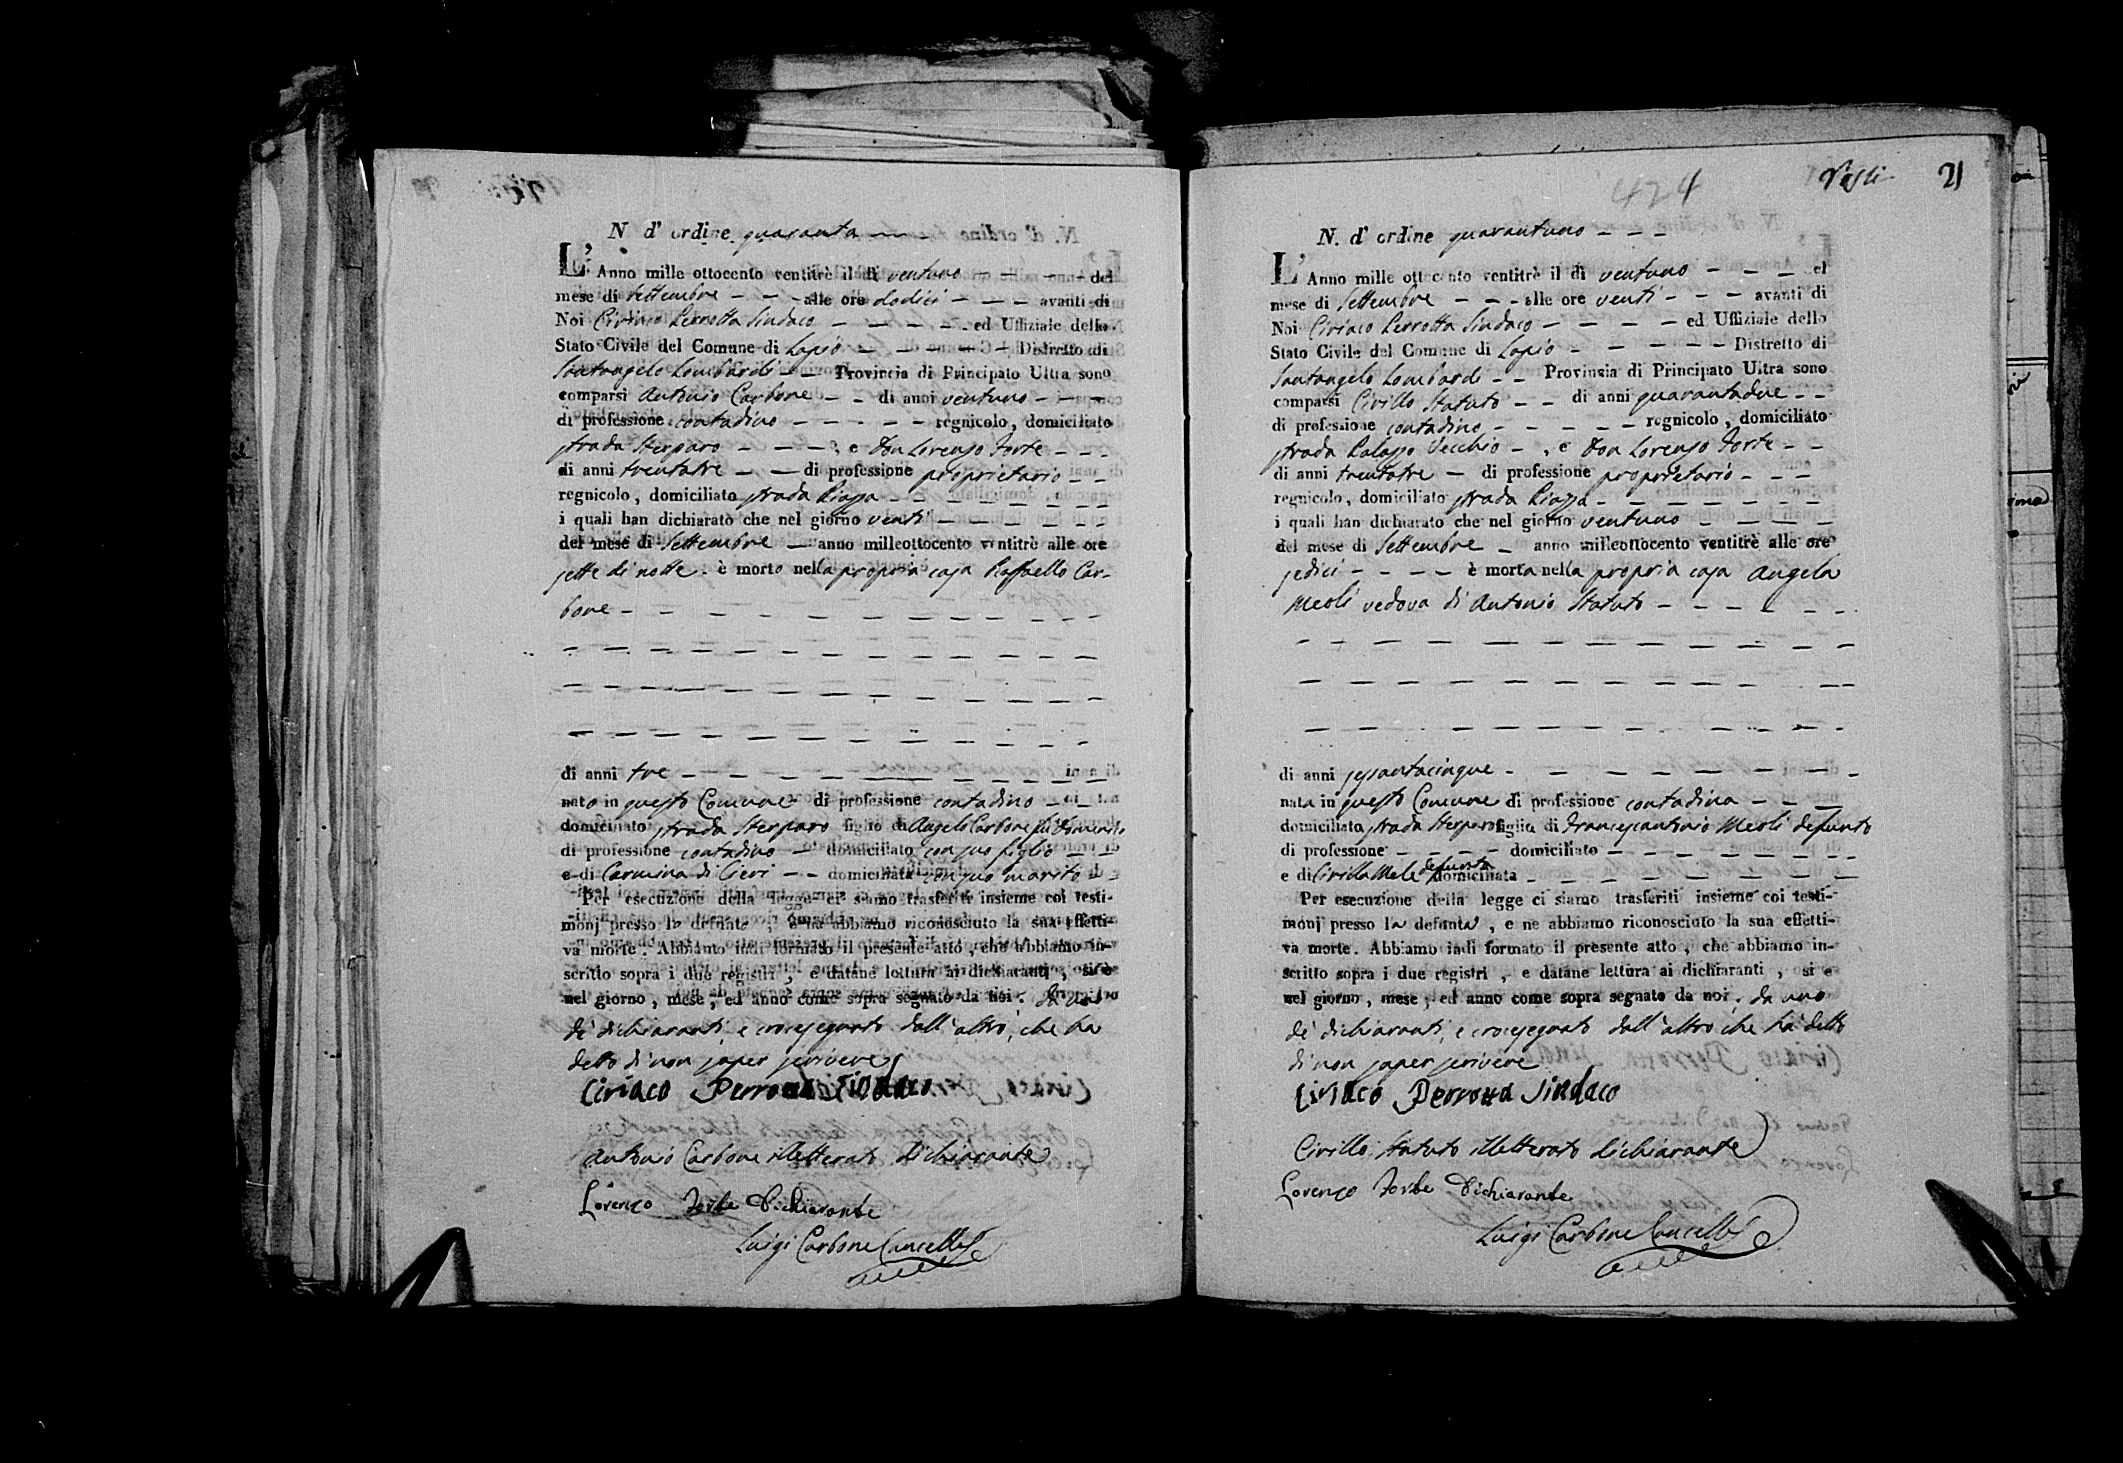 N d' ordine quaranta
L' Anno mille ottocento ventitrè il di ventuno - - - - del
mese di Settembre - - - alle ore dodici - - - avanti di
Noi Ciriaco Perrotta Sindaco - - - - - ed Uffiziale dello
Stato Civile del Comune di Lapio - - - - - Distretto di
Santangelo Lombardi - - Provincia di Principato Ultra sono
comparsi Antonio Carbone - - di anni ventuno - - -
di professione contadino - - - - - regnicolo, domiciliato
strada Sterparo - - - -, e Don Lorenzo Forte - - -
di anni trentatre - - di professione proprietario - -
regnicolo, domiciliato strada Piazza - - - - - - -
i quali han dichiarato che nel giorno venti - - - - -
del mese di Settembre - anno milleottocento ventitrè alle ore
sette di notte. è morto nella propria casa Raffaello Car-
bone - - - - - - - - - - - -
di anni tre - - - - - - - - - - -
nato in questo Comune di professione contadino - - -
domiciliato strada Sterparo figlio di Angelo Carbone fu
di professione contadino - domiciliato con suo figlio - -
e di Carmina di Cieri - - domiciliata con suo marito - -
Per esecuzione della legge ci siamo trasferiti insieme coi testi-
monj presso lo defunto, e ne abbiamo riconosciuto la sua effetti-
va morte. Abbiamo indi formato il presente atto, che abbiamo in-
scritto sopra i due registri, e datane lettura ai dichiaranti, si è
nel giorno, mese, ed anno come sopra segnato da noi. da uno
de' dichiaranti, e crocesegnato dall' altro, che ha
detto di non saper scrivere
Ciriaco Perrotta Sindaco
Antonio Carbone illetterato Dichiarante
Lorenzo Forte Dichiarante
Luigi Carbone Cancelle
424
Visti
21
N. d' ordine quarantuno - - -
L' Anno mille ottocento ventitrè il di ventuno - - - - el
mese di Settembre - - - alle ore venti - - - avanti di
Noi Ciriaco Perrotta Sindaco - - - - - ed Uffiziale dello
Stato Civile del Comune di Lapio - - - - - Distretto di
Santangelo Lombardi - - Provincia di Principato Ultra sono
comparsi Cirillo Statuto - - di anni quarantadue - -
di professione contadino - - - - - regnicolo, domiciliato
strada Palazzo Vecchio -, e Don Lorenzo Forte - -
di anni trentatre - di professione proprietario - - -
regnicolo, domiciliato strada Piazza - - - - - - -
i quali han dichiarato che nel giorno ventuno - - - - -
del mese di Settembre - anno milleottocento ventitrè alle ore
sedici - - - - è morta nella propria casa Angela
Meoli vedova di Antonio Statuto - - - - - -
di anni sessantacinque - - - - - - - - -
nata in questo Comune di professione contadina - - -
domiciliata strada Sterparo figlia di Francescantonio Meoli defunto
di professione - - - - domiciliato - - - - - - -
e di Cirilla Mele defunta domiciliata - - - - - - - -
Per esecuzione della legge ci siamo trasferiti insieme coi testi-
monj presso la defunta, e ne abbiamo riconosciuto la sua effetti-
va morte. Abbiamo indi formato il presente atto, che abbiamo in-
scritto sopra i due registri, e datane lettura ai dichiaranti, si è
nel giorno, mese, ed anno come sopra segnato da noi. da uno
de' dichiaranti, e crocesegnato dall' altro, che ha detto
di non saper scrivere
Ciriaco Perrotta Sindaco
Cirillo Statuto illetterato Dichiarante
Lorenzo Forte Dichiarante
Luigi Carbone Cancelle